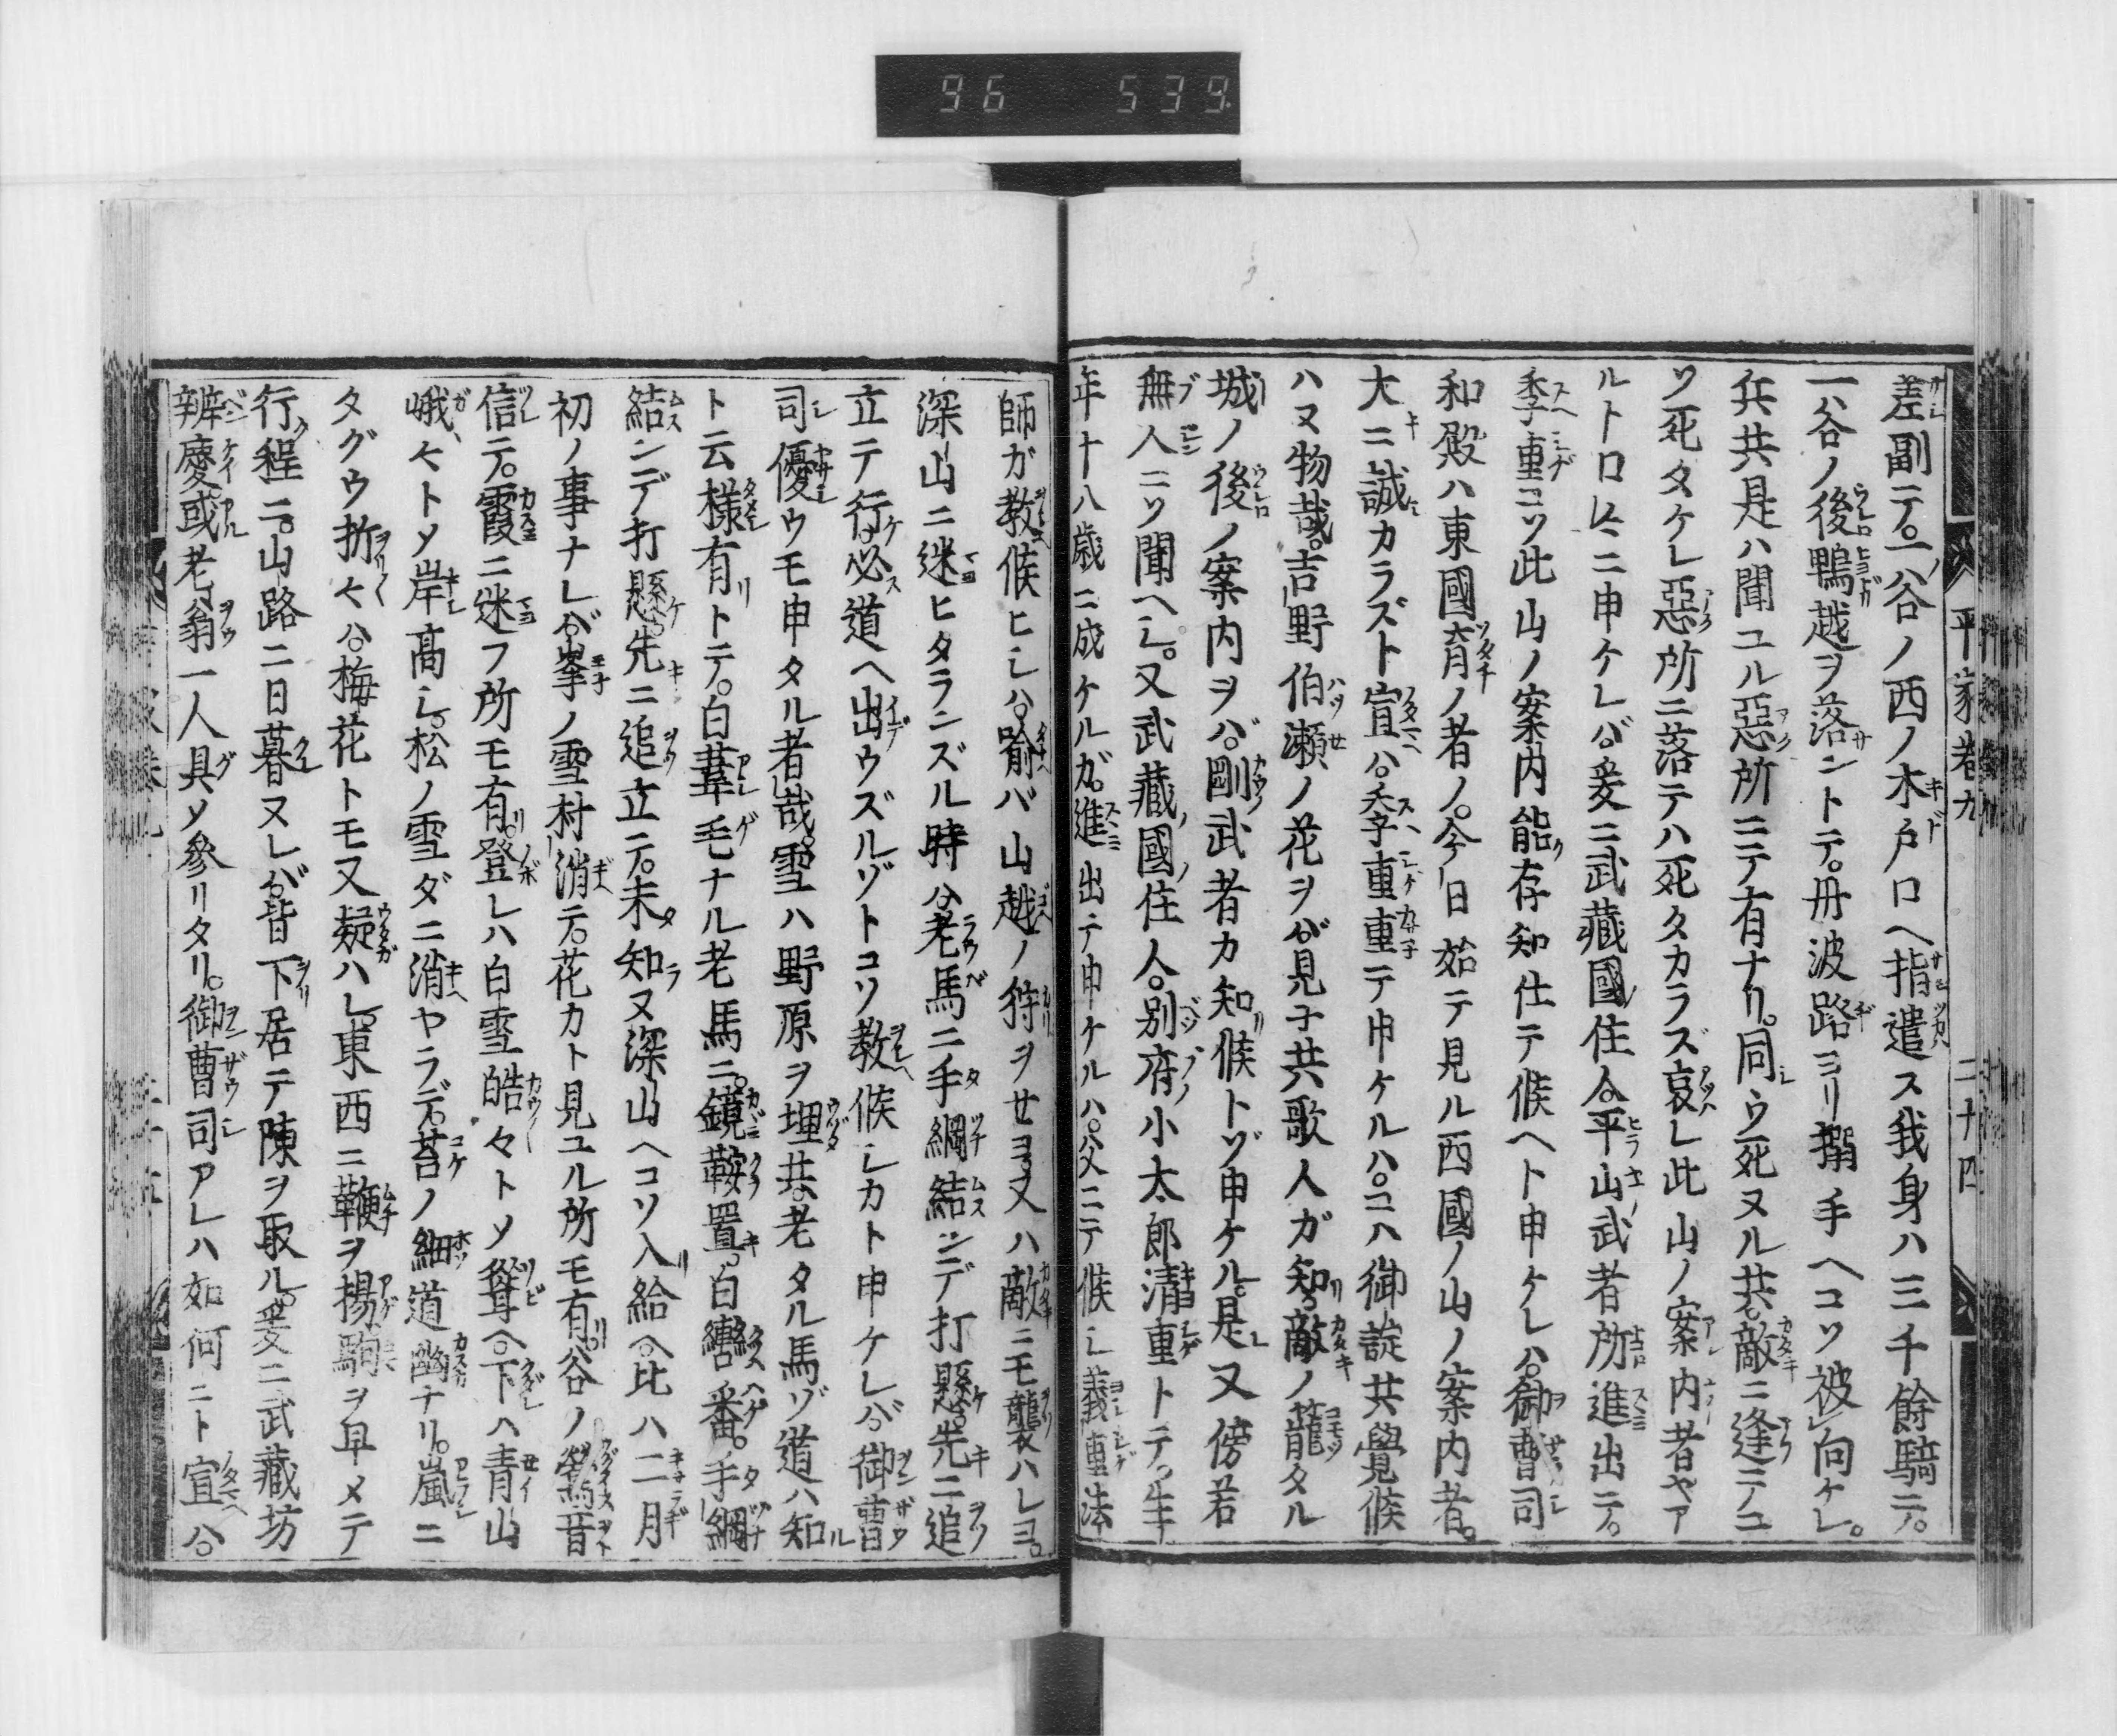 96 539
平家巻九 二十四
差副ニテ。一ノ谷ノ西ノ木戸口ヘ指遣ス我身ハ三千餘騎ニテ。
一ノ谷ノ後鴨越ヲ落ントテ。丹波路ヨリ搦手ヘコソ被向ケレ。
兵共是ハ聞ユル惡所ニテ有ナリ。同ウ死ヌル共。敵ニ逢テコ
ソ死タケレ惡所ニ落テハ死タカラズ哀レ此山ノ案内者ヤア
ルト口々ニ申ケレバ。爰ニ武藏國住人。平山武者所進出テ。
季重コソ此山ノ案内能存知仕テ候ヘト申ケレハ。御曹司
和殿ハ東國育ノ者ノ。今日始テ見ル西國ノ山ノ案内者。
大ニ誠カラズト宣ハ。季重重テ申ケルハ。コハ御諚共覺候
ハヌ物哉。吉野伯瀬ノ花ヲバ見子共歌人ガ知リ。敵ノ籠タル
城ノ後ノ案内ヲバ。剛武者カ知候トゾ申ケル。是又傍若
無人ニソ聞ヘシ。又武藏國住人。別府小太郎清重トテ。生年
年十八歳ニ成ケルガ。進出テ申ケルハ。父ニテ候シ義重法
師ガ教候ヒシハ。喩バ山越ノ狩ヲセヨ又ハ敵ニモ襲ハレヨ。
深山ニ迷ヒタランズル時ハ。老馬ニ手綱結ンデ打懸。先ニ追
立テ行。必道ヘ出ウズルゾトコソ教候シカト申ケレバ。御曹
司優ウモ申タル者哉。雪ハ野原ヲ埋共。老タル馬ゾ道ハ知
ト云樣有トテ。白葦毛ナル老馬ニ。鏡鞍置。白轡番。手綱
結ンデ打懸。先ニ追立テ。未知ラヌ深山ヘコソ入給ヘ。比ハ二月
初ノ事ナレバ。峯ノ雪村消テ。花カト見ユル所モ有リ。谷ノ鶯音
信テ。霞ニ迷フ所モ有。登レハ白雪皓々トメ聳ヘ。下ヘ青山
峨々トメ岸高シ。松ノ雪ダニ消ヤラデ。苔ノ細道幽ナリ。嵐ニ
タグウ折々ハ。梅花トモ又疑ハレ。東西ニ鞭ヲ揚駒ヲ早メテ
行程ニ。山路ニ日暮ヌレバ。皆下居テ陳ヲ取ル。爰ニ武藏坊
辨慶。或老翁一人具メ參リタリ。御曹司アレハ如何ニト宣ハ。